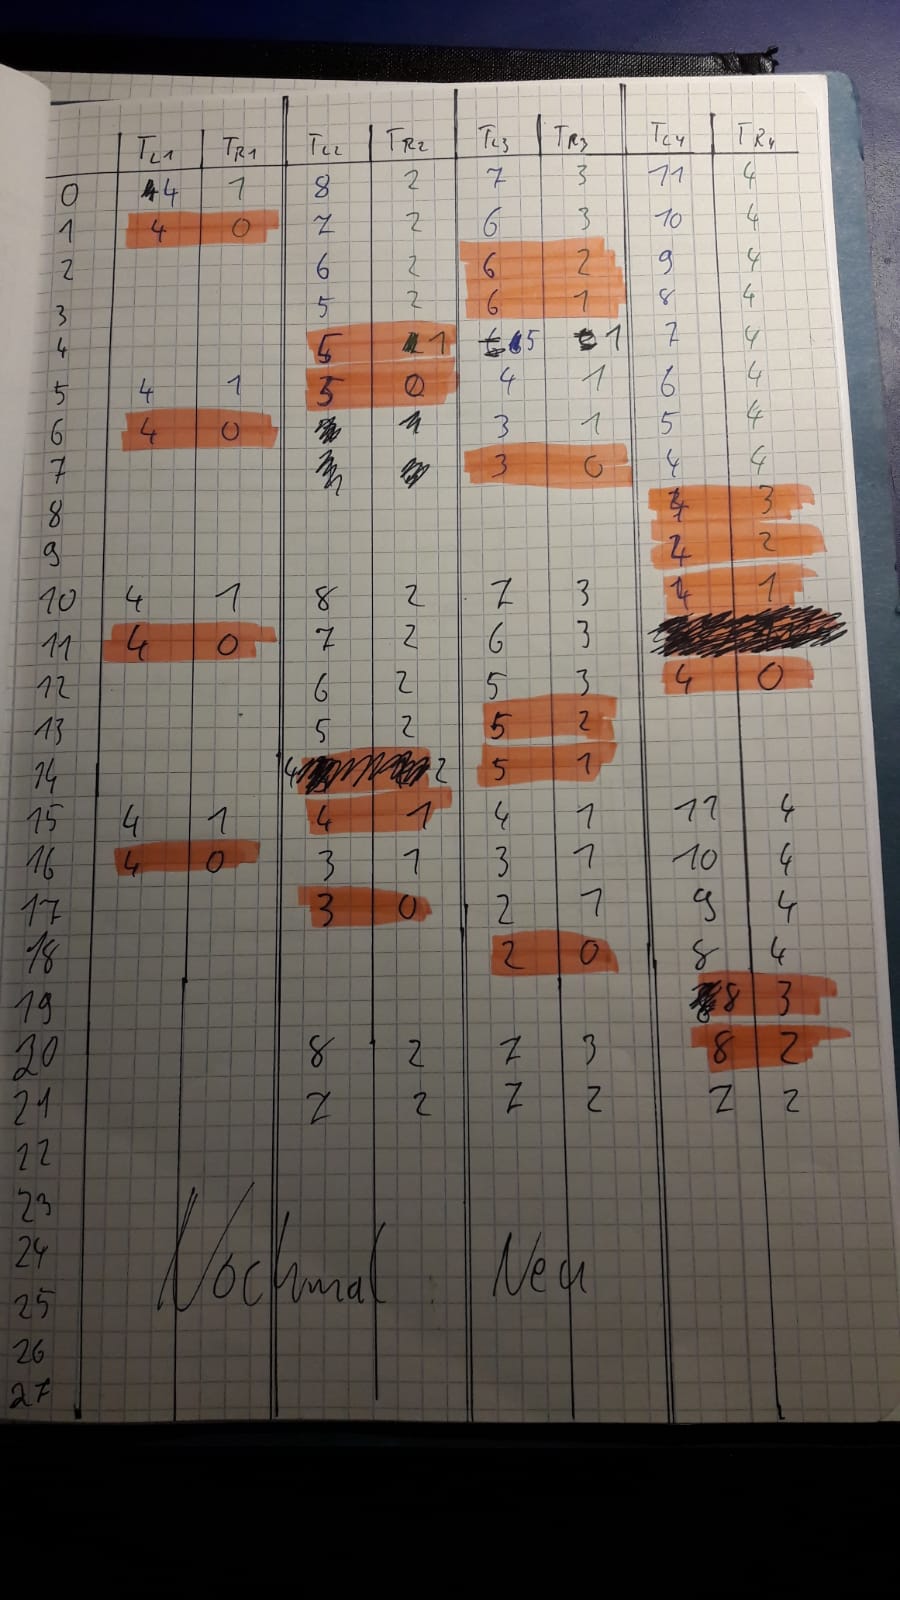 TL1 TR1 TL2 TR2 TL3 TR3 TL4 TR4
0 4 1 8 2 7 3 11 4
1 4 0 7 2 6 3 10 4
2 6 2 6 2 9 4
3 5 2 6 1 8 4
4 5 1 5 1 7 4
5 4 1 5 0 4 1 6 4
6 4 0 3 1 5 4
7 3 0 4 4
8 4 3
9 4 2
10 4 1 8 2 7 3 4 1
11 4 0 7 2 6 3
12 6 2 5 3 4 0
13 5 2 5 2
14 4 2 5 1
15 4 1 4 1 4 1 11 4
16 4 0 3 1 3 1 10 4
17 3 0 2 1 9 4
18 2 0 8 4
19 8 3
20 8 2 7 3 8 2
21 7 2 7 2 7 2
22
23
24
Nochmal Neu
25
26
27